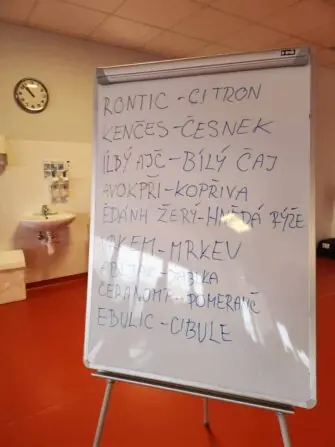 RONTIC - CITRON
KENČES - ČESNEK
ÍLBÝ AJČ - BÍLÝ ČAJ
AVOKPŘI - KOPŘIVA
ĚDÁNH ŽERÝ - HNĚDÁ RÝŽE
- MRKEV
POMERANČ
EBULIC - CIBULE